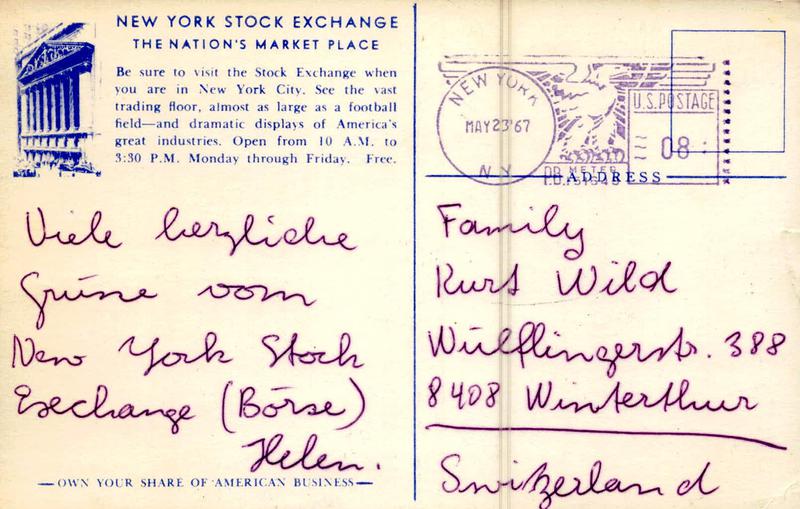 NEW YORK STOCK EXCHANGE
THE NATION'S MARKET PLACE
Be sure to visit the Stock Exchange when
you are in New York City. See the vast
trading floor, almost as large as a football
field—and dramatic displays of America's
great industries. Open from 10 A.M. to
3:30 P.M. Monday through Friday. Free.
Viele herzliche
Grüsse vom
New York Stock
Exechange (Börse)
Helen.
—OWN YOUR SHARE OF AMERICAN BUSINESS—
NEW YORK
MAY 23 '67
N Y
U.S. POSTAGE
08
P.B. METER
ADDRESS
Family
Kurt Wild
Wülflingerstr. 388
8408 Winterthur
Switzerland